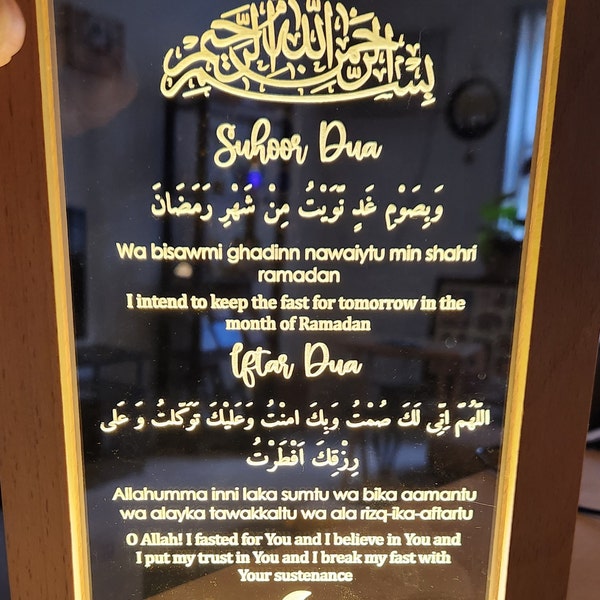 بسم الله الرحمن الرحيم
Suhoor Dua
وَبِصَوْمِ غَدٍ نَّوَيْتُ مِنْ شَهْرِ رَمَضَانَ
Wa bisawmi ghadinn nawaiytu min shahri
ramadan
I intend to keep the fast for tomorrow in the
month of Ramadan
Iftar Dua
اللَّهُمَّ اِنِّى لَكَ صُمْتُ وَبِكَ امنْتُ وَعَلَيْكَ تَوَكَّلتُ وَ عَلى
رِزْقِكَ اَفْطَرْتُ
Allahumma inni laka sumtu wa bika aamantu
wa alayka tawakkaltu wa ala rizq-ika-aftartu
O Allah! I fasted for You and I believe in You and
I put my trust in You and I break my fast with
Your sustenance